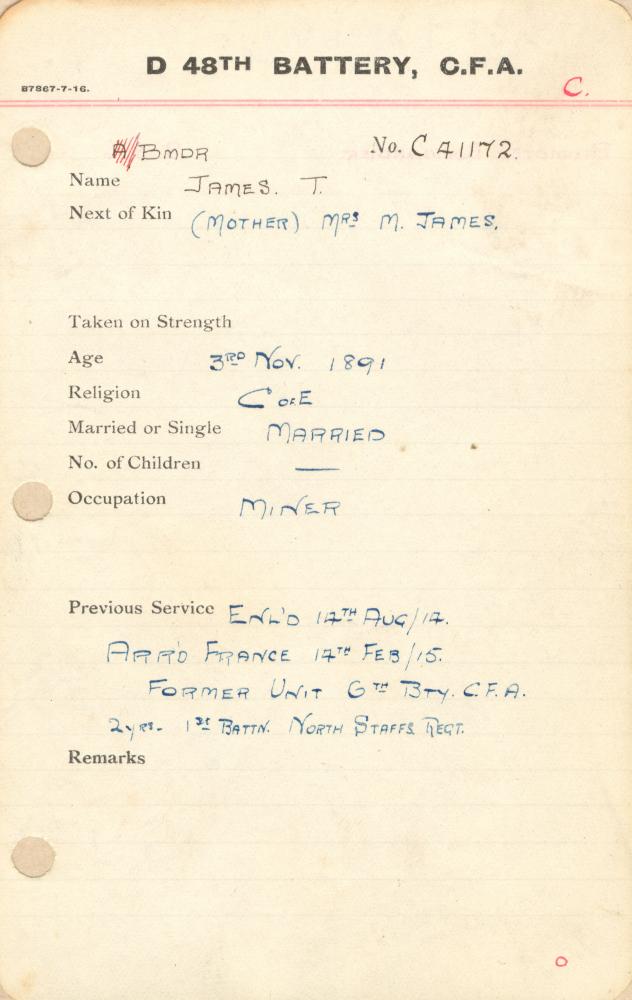 D 48TH BATTERY, C.F.A.
B7867-7-16.
C.
A/BMDR No. C 41172.
Name JAMES. T.
Next of Kin (MOTHER) MRS M. JAMES.
Taken on Strength
Age 3RD NOV. 1891
Religion C OF E
Married or Single MARRIED
No. of Children —
Occupation MINER
Previous Service ENL'D 14TH AUG/14.
ARR'D FRANCE 14TH FEB/15.
FORMER UNIT 6TH BTY. C.F.A.
2yrs. 1ST BATTN. NORTH STAFFS. REGT.
Remarks
O